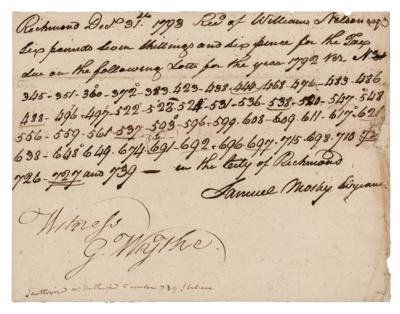 Richmond Decr. 31.st 1793 Recd. of William Nelson esqr
six pounds seven shillings and six pence for the Tax
due on the following Lotts for the year 1792 viz. No.
345-351-360-372-383-423-438-464-468-476-483-486
488-496-497-522-523-524-531-536-538-540-547-548
556-559-561-537-593-596-599-608-609-611-617-621
638-648-649-674-691-692-696-697-715-698-710
726-727 and 739 — in the City of Richmond
Samuel Mosby
Witness
G. Wythe.